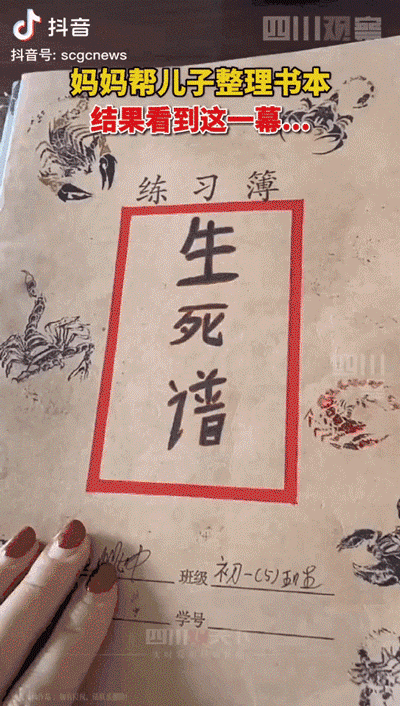 抖音
四川观察
抖音号: scgcnews
妈妈帮儿子整理书本
结果看到这一幕...
练习簿
生
死
谱
四川
班级 初一(5)
学号
四川